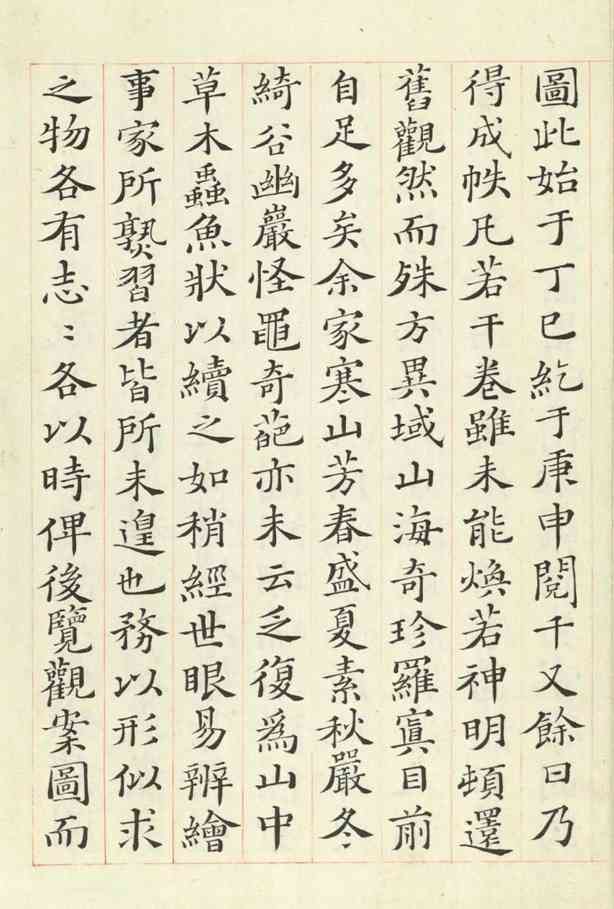 圖此始于丁巳紇于庚申閱千又餘日乃
得成帙凡若干卷雖未能煥若神明頓還
舊觀然而殊方異域山海奇珍羅寘目前
自足多矣余家寒山芳春盛夏素秋嚴冬
綺谷幽巖怪黽奇葩亦未云乏復爲山中
草木蟲魚狀以續之如稍經世眼易辨繪
事家所熟習者皆所未遑也務以形似求
之物各有志〻各以時俾後覽觀案圖而